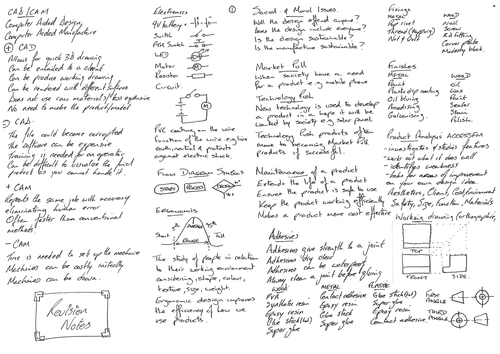 CAD/CAM
Computer Aided Design
Computer Aided Manufacture
+ CAD
Allows for quick 3D drawing
Can be emailed to a client
Can be produce working drawing
Can be rendered with different surfaces
Does not use raw materials/less expensive
No need to make the product/model
- CAD:
The file could become corrupted
The software can be expensive
Training is needed for an operator
Can be difficult to visualise the final
product as you cannot handle it.
+ CAM
Repeats the same job with accuracy
eliminating human error
Often faster than conventional
methods
- CAM
Time is needed to set up the machine
Machines can be costly initially
Machines can be down.
Revision
Notes
Electronics
9V battery
Switch
PTM Switch
LED
Motor
Resistor
Circuit
M
PVC contains the wire
function of the wire e.g. live
earth, neutral & protects
against electric shock.
Flow Diagram Systems
START
PROCESS
Ergonomics
Short
Tall
The study of people in relation
to their working environment
considering, shape, colour,
texture, size, weight.
Ergonomic design improves
the efficiency of how we
use products.
1
Social & Moral Issues.
Will the design offend anyone?
Does the design include everyone?
Is the design sustainable?
Is the manufacture sustainable?
Market Pull
When society have a need
for a product e.g mobile phone
Technology Push
New technology is used to develop
a product in a hope it will be
wanted by society e.g. solar panel
Technology Push products often
move to becoming Market Pull
products if successful.
Maintenance of a product
Extends the life of a product
Ensures the product is safe to use
Keep the product working efficiently
Makes a product more cost effective
Adhesives
Adhesives give strength to a joint
Adhesives dry clear
Adhesives can be waterproof
Always clean a joint before glueing
WOOD METAL PLASTIC
PVA Contact adhesive Glue stick (hot)
Synthetic resin Epoxy resin Super glue
Epoxy resin Glue stick Epoxy resin
Glue stick (hot) Super glue Contact adhesive
Super glue
Fixings
METAL WOOD
Pop rivet Nail
Thread (tapping) Screw
Nut & bolt KD Fitting
Corner plate
Modesty block
Finishes
METAL WOOD
Paint Oil
Plastic dip coating Wax
Oil bluing Paint
Anodising Sealer
Galvanising. Stain
Polish
Product Analysis ACCESSFM
- investigates & studies features
- works out what it does well
- identifies weakness
- looks for areas of improvement
on your own design idea.
Aesthetics, Client, Cost, Environment
Safety, Size, Function, Materials
Working drawing (orthographic)
TOP
FRONT
SIDE
FIRST
ANGLE
THIRD
ANGLE